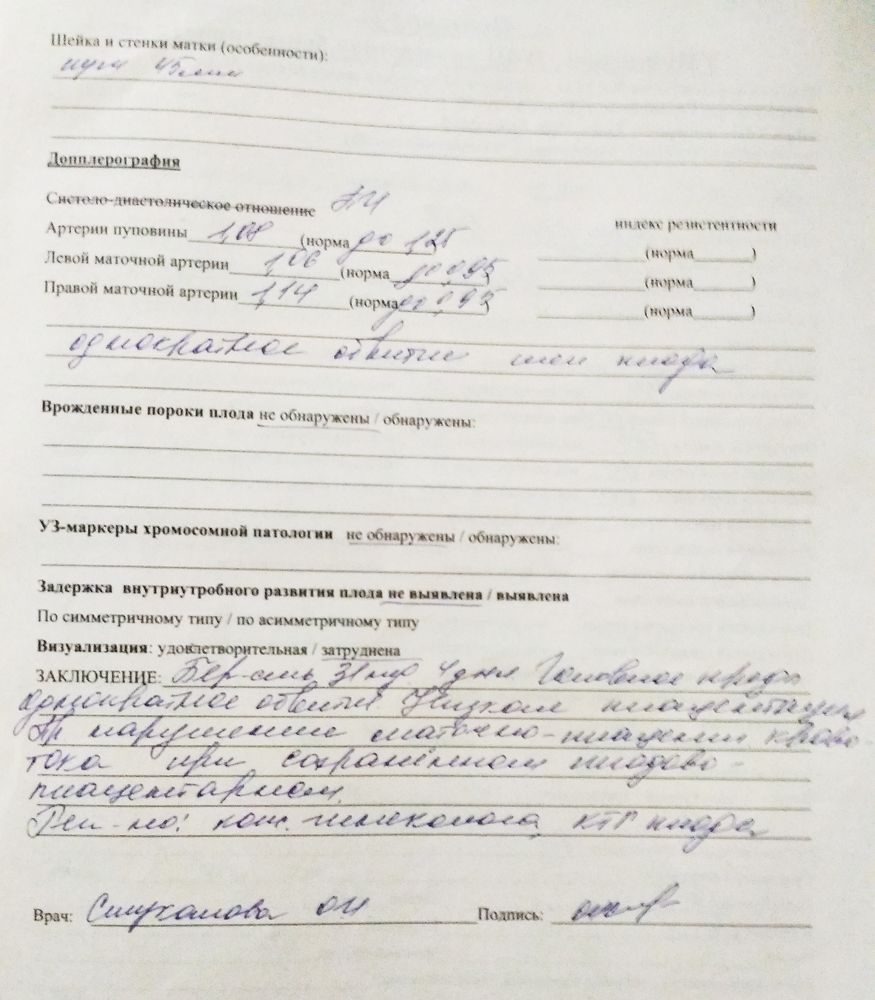 Шейка и стенки матки (особенности):
цук 45мм
Допплерография
Систоло-диастолическое отношение ПИ
индекс резистентности
Артерии пуповины 1,08 (норма до 1,25 (норма )
Левой маточной артерии 1,06 (норма до 0,95 (норма )
Правой маточной артерии 1,14 (норма до 0,95 (норма )
однократное обвитие шеи плода
Врожденные пороки плода не обнаружены / обнаружены:
УЗ-маркеры хромосомной патологии не обнаружены / обнаружены:
Задержка внутриутробного развития плода не выявлена / выявлена
По симметричному типу / по асимметричному типу
Визуализация: удовлетворительная / затруднена
ЗАКЛЮЧЕНИЕ: Бер-сть 31нед 4дня Головное предл
однократное обвитие Низкая плацентация
Пр нарушение маточно-плацентн крово-
тока при сохранённом плодово-
плацентарном.
Рек-но: конс. гинеколога, КТГ плода
Врач: ОИ Подпись: